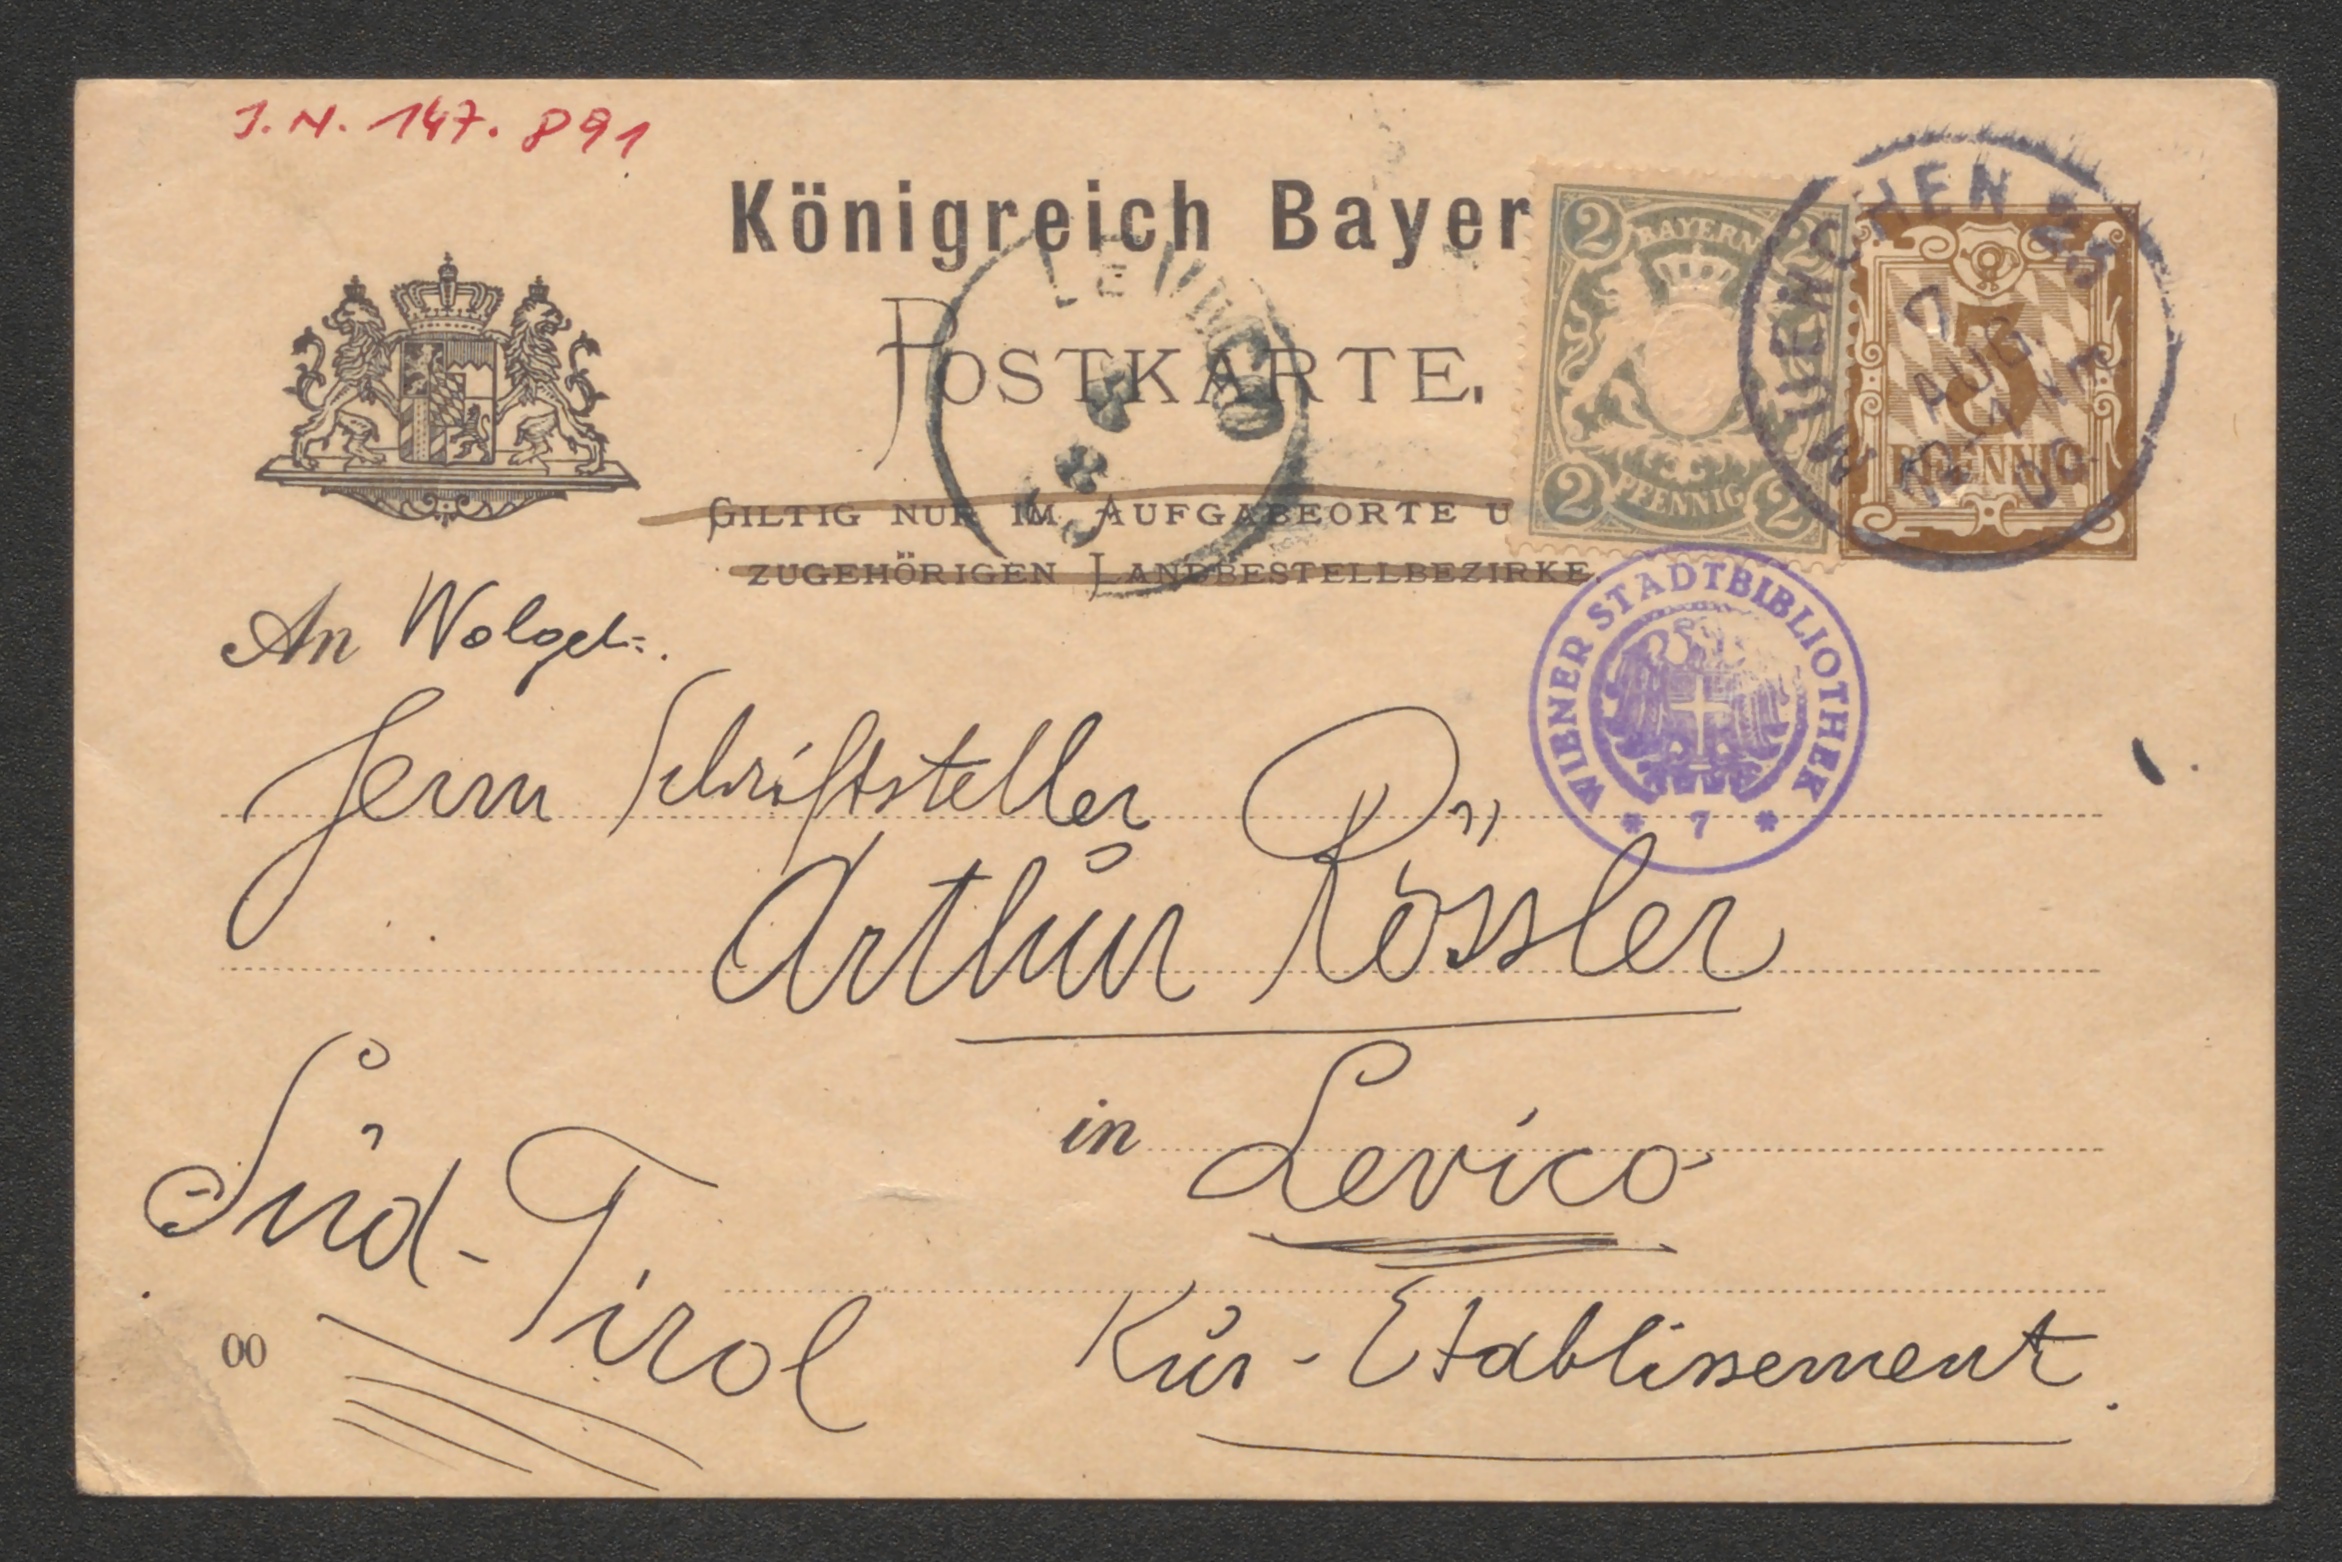 J.N. 147.891
Königreich Bayer
POSTKARTE.
2 BAYERN 2
2 PFENNIG 2
3
PFENNIG
MUENCHEN
7
AUG
12-1
00
GILTIG NUR IM AUFGABEORTE U
ZUGEHÖRIGEN LANDBESTELLBEZIRKE
WIENER STADTBIBLIOTHEK
* 7 *
An Wolgeb:.
Herrn Schriftsteller
Arthur Rössler
in Levico
Süd-Tirol
Kur-Etablissement.
00